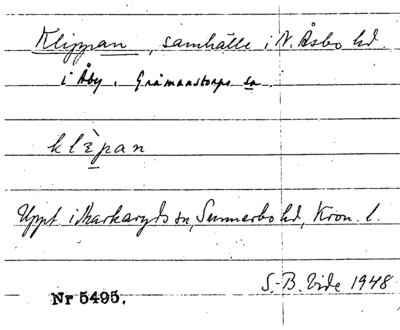 Klippan, samhälle i N. Åsbo hd.
i Åby, Gråmanstorps sn
klὲpan
Uppt. i Markaryds sn, Sunnerbo hd, Kron. l.
S.-B. Vide 1948
Nr 5495.